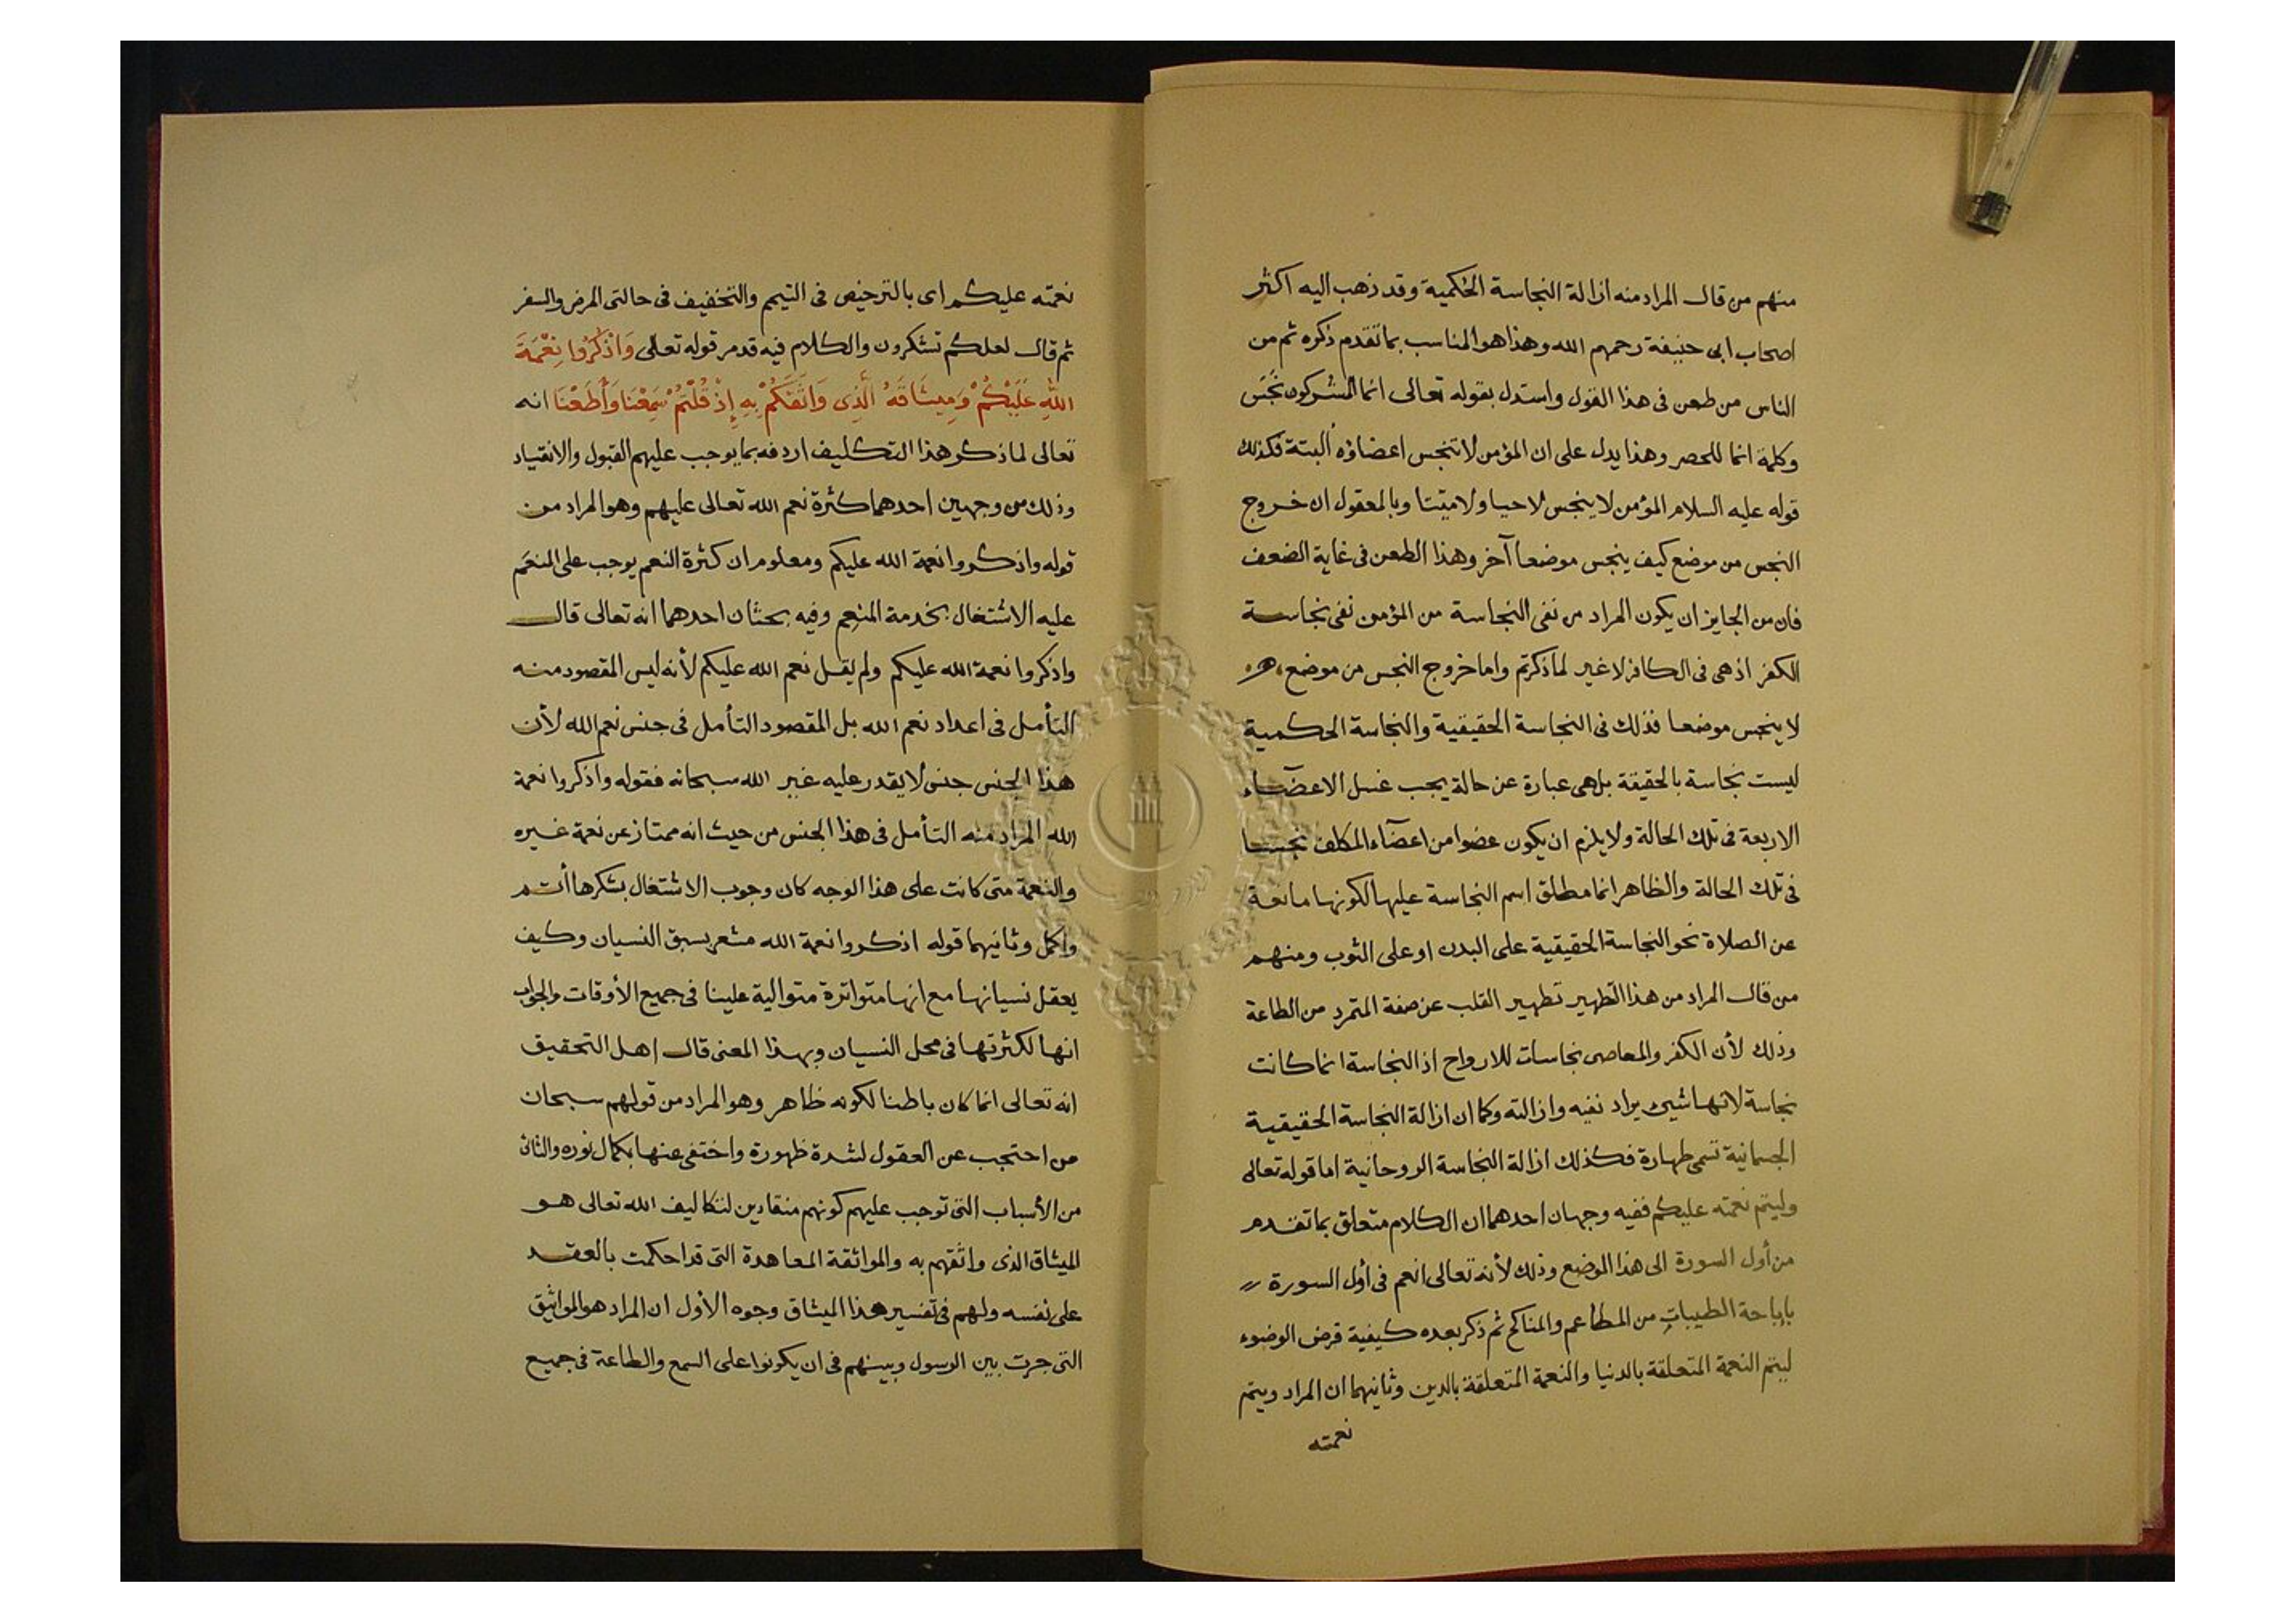 منهم من قال المراد منه ازالة النجاسة الحكمية وقد ذهب اليه اكثر
اصحاب ابى حنيفة رحمهم الله وهذا هو المناسب بما تقدم ذكره ثم من
الناس من طعن فى هذا القول واستدل بقوله تعالى انما المشركون نجس
وكلمة انما للحصر وهذا يدل على ان المؤمن لا تنجس اعضاؤه ألبتة فكذلك
قوله عليه السلام المؤمن لا ينجس لا حيا ولا ميتا وبالمعقول ان خروج
النجس من موضع كيف ينجس موضعا آخر وهذا الطعن فى غاية الضعف
فان من الجايز ان يكون المراد من نفى النجاسة من المؤمن نفى نجاسة
الكفر اذ هى فى الكافر لا غير لما ذكرتم واما خروج النجس من موضع
لا ينجس موضعا فذلك فى النجاسة الحقيقية والنجاسة الحكمية
ليست نجاسة بالحقيقة بل هى عبارة عن حالة يجب غسل الاعضآء
الاربعة فى تلك الحالة ولا يلزم ان يكون عضوا من اعضآء المكلف نجسا
فى تلك الحالة والظاهر انما مطلق اسم النجاسة عليها لكونها مانعة
عن الصلاة نحو النجاسة الحقيقية على البدن او على الثوب ومنهم
من قال المراد من هذا التطهير تطهير القلب عن صفة التمرد من الطاعة
وذلك لأن الكفر والمعاصى نجاسات للارواح اذ النجاسة انما كانت
نجاسة لانها شيئ يراد نفيه وازالته وكما ان ازالة النجاسة الحقيقية
الجسمانية تسمى طهارة فكذلك ازالة النجاسة الروحانية اما قوله تعالى
وليتم نعمته عليكم ففيه وجهان احدهما ان الكلام متعلق بما تقدم
من أول السورة الى هذا الموضع وذلك لأنه تعالى انعم فى أول السورة
باباحة الطيبات من المطاعم والمناكح ثم ذكر بعده كيفية فرض الوضوء
ليتم النعمة المتعلقة بالدنيا والنعمة المتعلقة بالدين وثانيهما ان المراد ويتم
نعمته
نعمته عليكم اى بالترخيص فى التيمم والتخفيف فى حالتى المرض والسفر
ثم قال لعلكم تشكرون والكلام فيه قد مر قوله تعالى وَاذْكُرُوا نِعْمَةَ
اللهِ عَلَيْكُمْ وَمِيثَاقَهُ الَّذِى وَاثَقَكُمْ بِهِ إِذْ قُلْتُمْ سَمِعْنَا وَأَطَعْنَا انه
تعالى لما ذكر هذا التكليف اردفه بما يوجب عليهم القبول والانقياد
وذلك من وجهين احدهما كثرة نعم الله تعالى عليهم وهو المراد من
قوله واذكروا نعمة الله عليكم ومعلوم ان كثرة النعم يوجب على المنعَم
عليه الاشتغال بخدمة المنعِم وفيه بحثان احدهما انه تعالى قال
واذكروا نعمة الله عليكم ولم يقل نعم الله عليكم لأنه ليس المقصود منه
التأمل فى اعداد نعم الله بل المقصود التأمل فى جنس نعم الله لأن
هذا الجنس جنس لا يقدر عليه غير الله سبحانه فقوله واذكروا نعمة
الله المراد منه التأمل فى هذا الجنس من حيث انه ممتاز عن نعمة غيره
والنعمة متى كانت على هذا الوجه كان وجوب الاشتغال بشكرها أتم
واكمل وثانيهما قوله اذكروا نعمة الله مشعر بسبق النسيان وكيف
يعقل نسيانها مع انها متواترة متوالية علينا فى جميع الأوقات والجواب
انها لكثرتها فى محل النسيان وبهذا المعنى قال اهل التحقيق
انه تعالى انما كان باطنا لكونه ظاهر وهو المراد من قولهم سبحان
من احتجب عن العقول لشدة ظهورة واختفى عنها بكمال نوره والثانى
من الأسباب التى توجب عليهم كونهم منقادين لتكاليف الله تعالى هو
الميثاق الذى واثقهم به والمواثقة المعاهدة التى قد احكمت بالعقد
على نفسه ولهم فى تفسير هذا الميثاق وجوه الأول ان المراد هو المواثيق
التى جرت بين الرسول وبينهم فى ان يكونوا على السمع والطاعة فى جميع